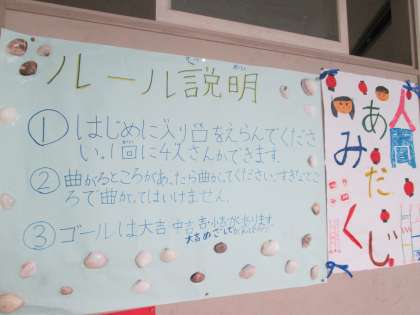 ルール説明
①はじめに入り口をえらんでくださ
い。1回に4人さんかできます。
②曲がるところがあったら曲がってください。すきなところ
で曲がってはいけません。
③ゴールは大吉 中吉 吉 小吉があります
大吉めざしてがんばろう
人間
あみだくじ